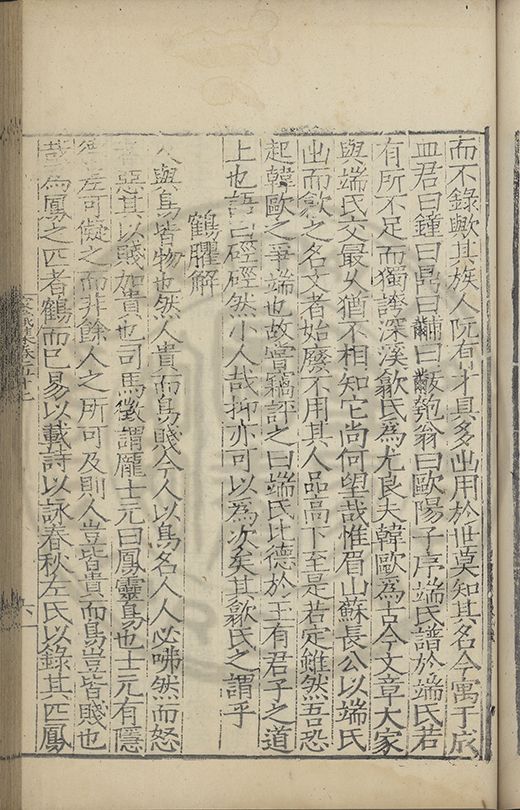 而不錄歟其族人阮有才具多出用於世莫知其名今寓于成
血君曰鐘曰鼎曰黼曰黻匏翁曰歐陽子序端氏譜於端氏若
有所不足而獨誇深溪歙氏為尤良夫韓歐為古今文章大家
與端氏交最久猶不相知它尚何望哉惟眉山蘇長公以端氏
出而歙之名文者始廢不用其人品高下至是若定雖然吾恐
起韓歐之爭端也故嘗竊評之曰端氏比德於玉有君子之道
上也語曰硜硜然小人哉抑亦可以為次矣其歙氏之謂乎
鶴臞解
人與鳥皆物也然人貴而鳥賤今人以鳥名人人必咈然而怒
者惡其以賤加貴也司馬徽謂龐士元曰鳳靈鳥也士元有隱
德左可儗之而非餘人之所可及則人豈皆貴而鳥豈皆賤也
為鳳之匹者鶴而已易以載詩以詠春秋左氏以錄其匹鳳